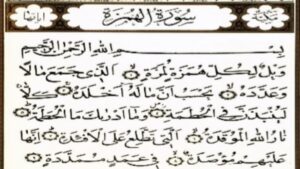 سُورَةُ الْهُمَزَةِ
بِسْمِ اللهِ الرَّحْمَنِ الرَّحِيمِ
وَيْلٌ لِكُلِّ هُمَزَةٍ لُمَزَةٍ ۝ الَّذِي جَمَعَ مَالًا
وَعَدَّدَهُ ۝ يَحْسَبُ أَنَّ مَالَهُ أَخْلَدَهُ ۝ كَلَّا
لَيُنْبَذَنَّ فِي الْحُطَمَةِ ۝ وَمَا أَدْرَاكَ مَا الْحُطَمَةُ ۝
نَارُ اللهِ الْمُوقَدَةُ ۝ الَّتِي تَطَّلِعُ عَلَى الْأَفْئِدَةِ ۝ إِنَّهَا
عَلَيْهِمْ مُؤْصَدَةٌ ۝ فِي عَمَدٍ مُمَدَّدَةٍ ۝